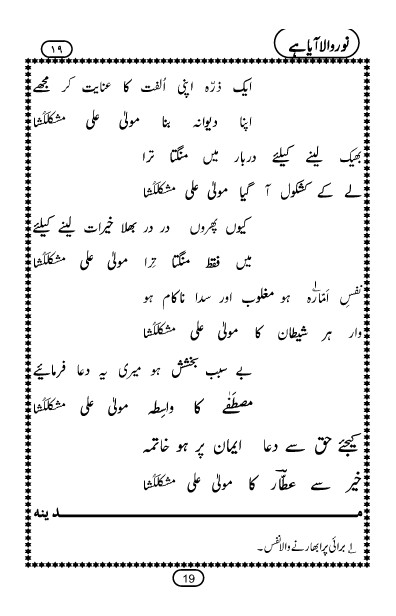 نور والا آیا ہے
۱۹
ایک ذرّہ اپنی اُلفت کا عنایت کر مجھے
اپنا دیوانہ بنا مولیٰ علی مشکلکُشا
بھیک لینے کیلئے دربار میں منگتا ترا
لے کے کشکول آ گیا مولیٰ علی مشکلکُشا
کیوں پھروں در در بھلا خیرات لینے کیلئے
میں فقط منگتا تِرا مولیٰ علی مشکلکُشا
نفسِ اَمّارہ ۱ ہو مغلوب اور سدا ناکام ہو
وار ہر شیطان کا مولیٰ علی مشکلکُشا
بے سبب بخشش ہو میری یہ دعا فرمائیے
مصطفٰے کا واسِطہ مولیٰ علی مشکلکُشا
کیجئے حق سے دعا ایمان پر ہو خاتمہ
خیر سے عطّار کا مولیٰ علی مشکلکُشا
مــدینه
۱ برائی پر ابھارنے والا نفس۔
19